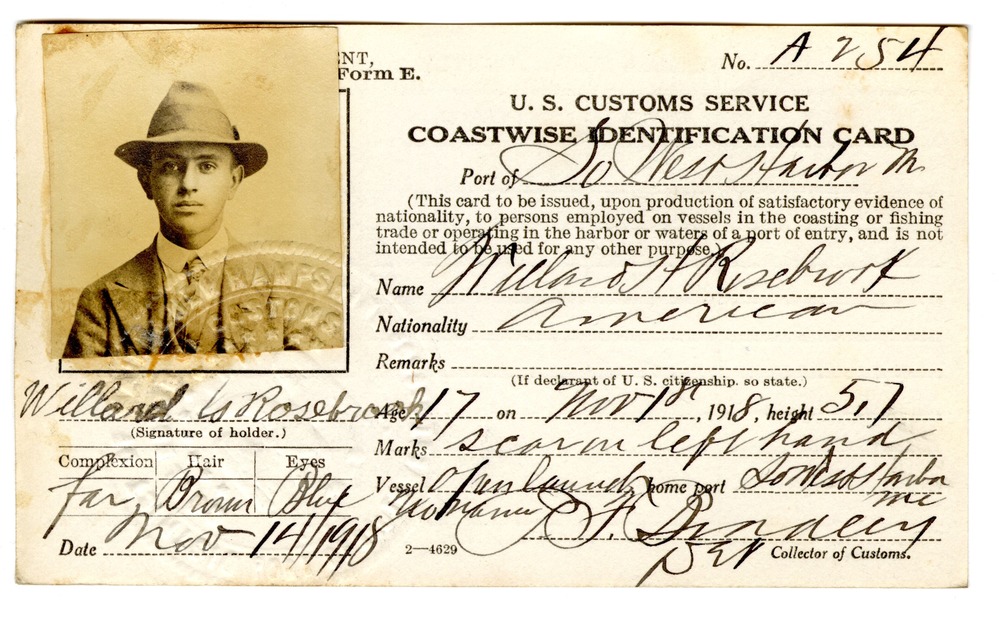 ENT,
Form E.
No. A 254
U. S. CUSTOMS SERVICE
COASTWISE IDENTIFICATION CARD
Port of So West Harbor Me
(This card to be issued, upon production of satisfactory evidence of
nationality, to persons employed on vessels in the coasting or fishing
trade or operating in the harbor or waters of a port of entry, and is not
intended to be used for any other purpose.)
Name Willard H Rosebrook
Nationality American
Remarks
(If declarant of U. S. citizenship, so state.)
Willard Rosebrook
(Signature of holder.)
Age 17 on Nov 1st, 1918, height 5.7
Marks scar on left hand
Complexion Hair Eyes
far Brown Blue
Vessel Open launch home port So West Harbor
Me
No name
Date Nov 14/1918
2—4629
Dep Collector of Customs.